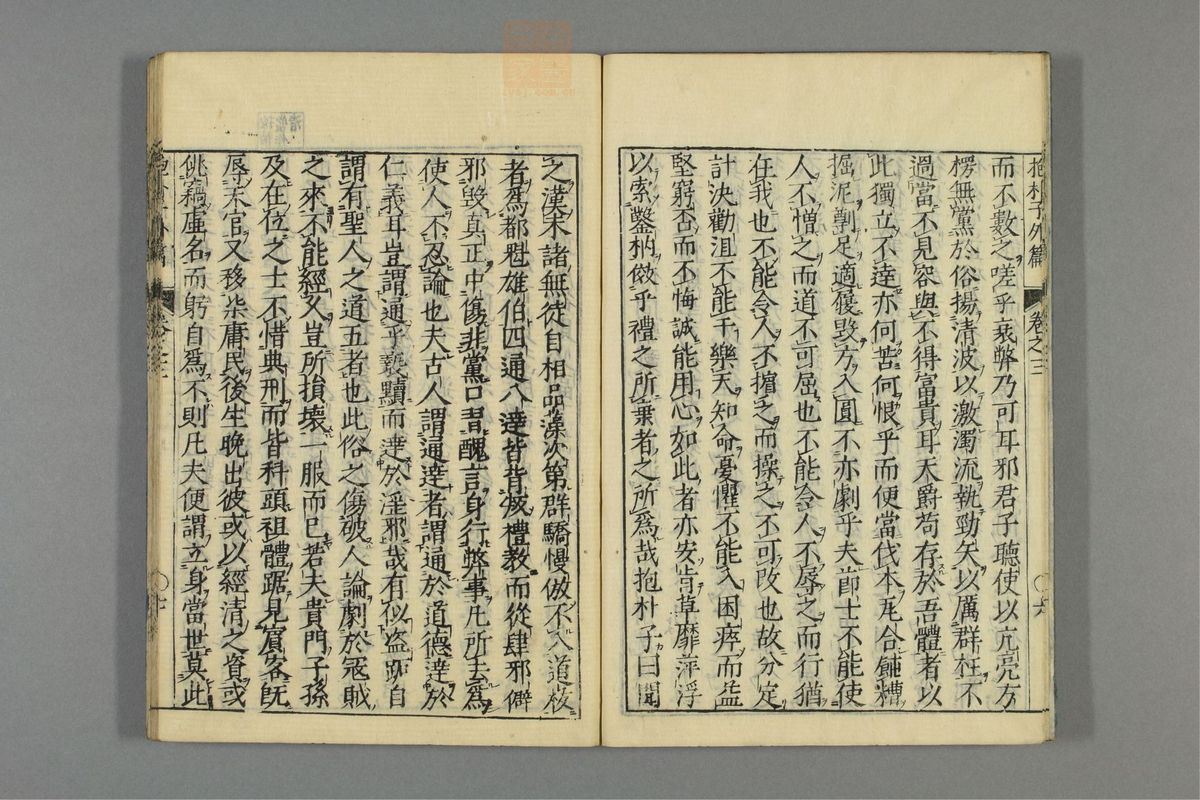 抱朴子外篇 卷之三 〇六
而不數之嗟乎衰弊乃可耳邪君子聽使以亢亮方
楞無黨於俗揚清波以激濁流執勁矢以厲群枉不
過當不見容與不得富貴耳天爵苟存於吾體者以
此獨立不達亦何苦何恨乎而便當伐本瓦合餔糟
掘泥剸足適履毀方入圓不亦劇乎夫節士不能使
人不憎之而道不可屈也不能令人不辱之而行猶
在我也不能令人不擯之而操之不可改也故分定
計決勸沮不能干樂天知命憂懼不能入困瘁而益
堅窮否而不悔誠能用心如此者亦安肯草靡萍浮
以索鑿枘傚乎禮之所棄者之所為哉抱朴子曰聞
之漢末諸無徒自相品藻次第群驕慢傲不入道檢
者為都魁雄伯四通八達皆背叛禮教而從肆邪僻
邪毀真正中傷非黨口習醜言身行弊事凡所云為
使人不忍論也夫古人謂通達者謂通於道德達於
仁義耳豈謂通乎褻黷而達於淫邪哉有似盜跖自
謂有聖人之道五者也此俗之傷破人論劇於寇賊
之來不能經久豈所損壞一服而已若夫貴門子孫
及在位之士不惜典刑而皆科頭袒體踞見賓客既
辱天官又移染庸民後生晚出彼或以經清之資或
佻竊虛名而躬自為不則凡夫便謂立身當世莫此